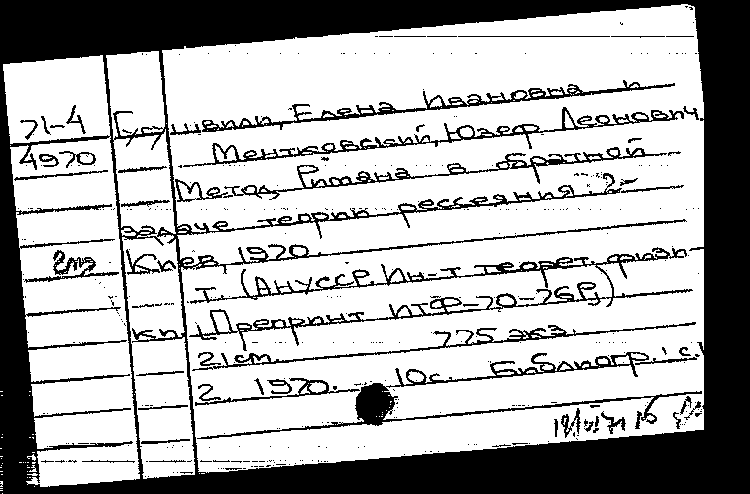 71-4
4970
Гурушвили, Елена Ивановна и
Ментковский, Юзеф Леонович.
Метод Римана в обратной
задаче теории рессеяния. 2-
Киев, 1970.
т. (АНУССР. Ин-т теорет. физи-
ки. Препринт ИТФ-70-76Р)
21см. 775 экз.
2. 1970. 10с. Библиогр.: с.